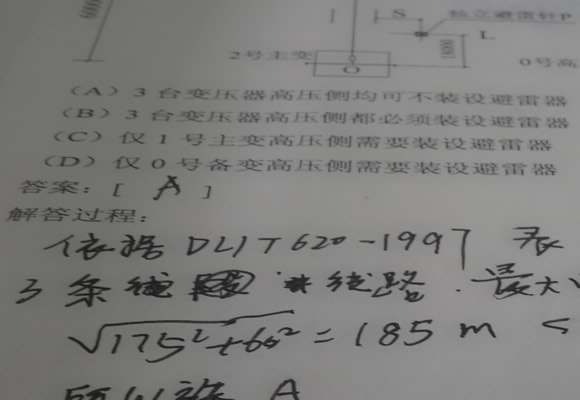 S 独立避雷针P
L
2号主变
O
0号高
(A) 3台变压器高压侧均可不装设避雷器
(B) 3台变压器高压侧都必须装设避雷器
(C) 仅1号主变高压侧需要装设避雷器
(D) 仅0号备变高压侧需要装设避雷器
答案: [ A ]
解答过程:
依据 DL/T620-1997 表
3条线 线路. 最大
√175²+60² = 185 m <
所以选 A